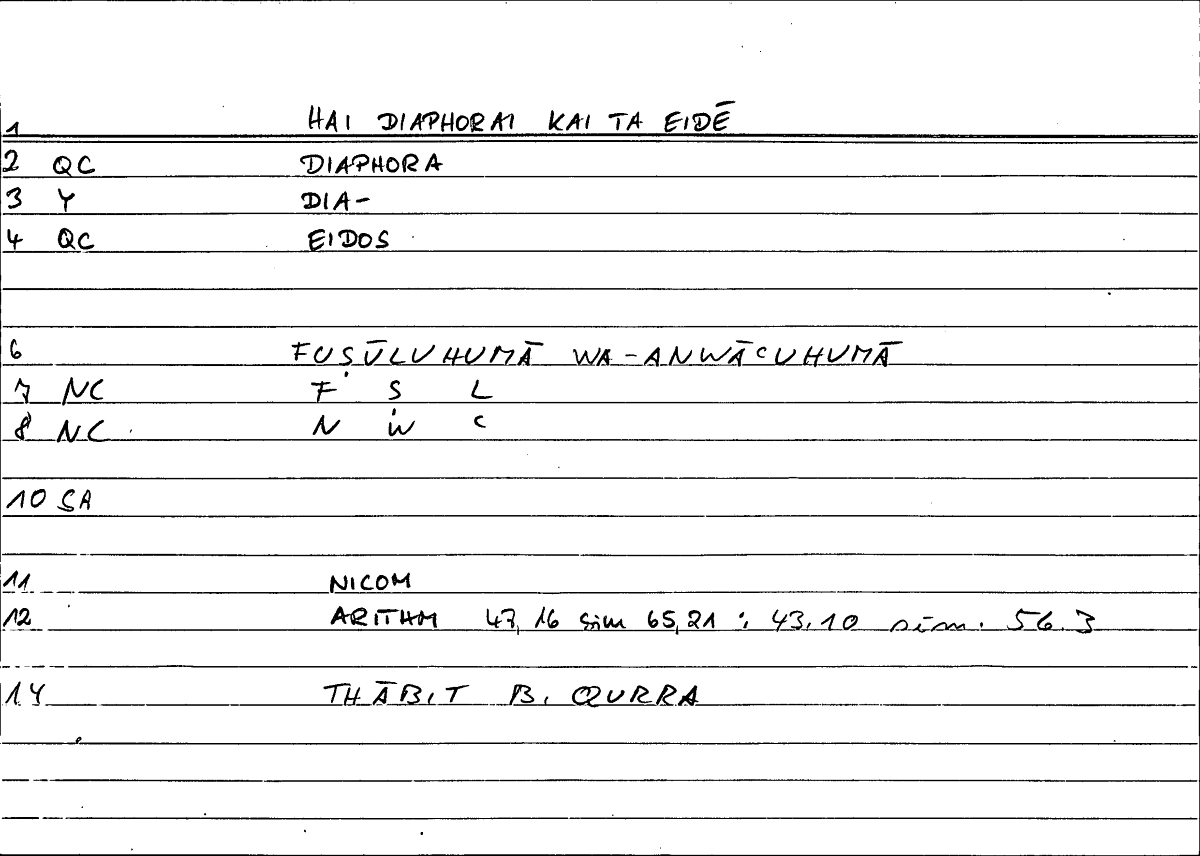 1 HAI DIAPHORAI KAI TA EIDĒ
2 QC DIAPHORA
3 Y DIA-
4 QC EIDOS
6 FUṢŪLUHUMĀ WA-ANWĀCUHUMĀ
7 NC F Ṣ L
8 NC N W C
10 SA
11 NICOM
12 ARITHM 47,16 sim 65,21 : 43.10 sim. 56.3
14 THĀBIT B. QURRA